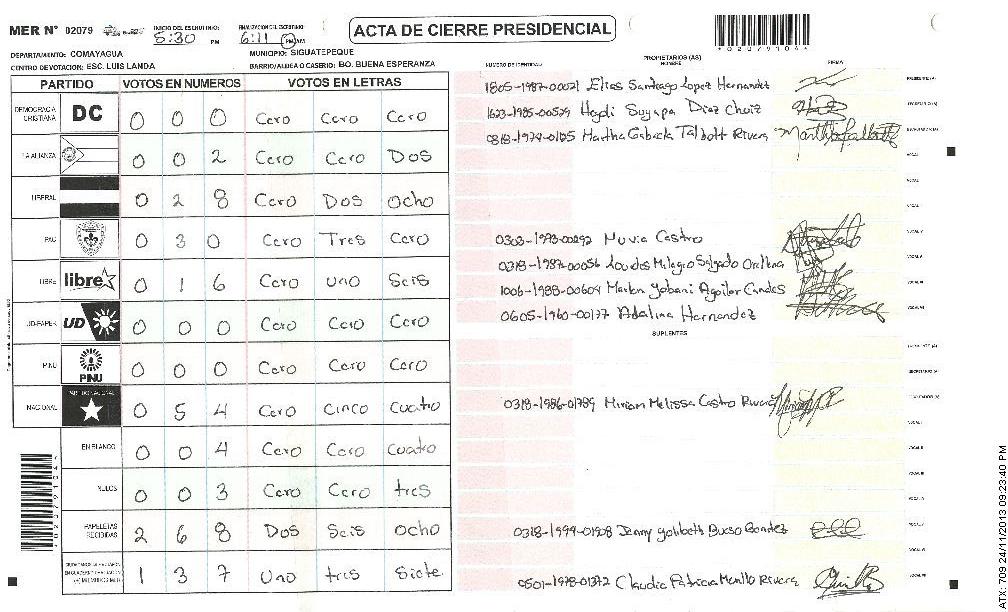 MER N° 02079 INICIO DEL ESCRUTINIO: 5:30 PM FINALIZACION DEL ESCRUTINIO: 6:11 PM AM
ACTA DE CIERRE PRESIDENCIAL
DEPARTAMENTO: COMAYAGUA MUNICIPIO: SIGUATEPEQUE
CENTRO DE VOTACION: ESC. LUIS LANDA BARRIO/ALDEA O CASERIO: BO. BUENA ESPERANZA
PARTIDO VOTOS EN NUMEROS VOTOS EN LETRAS
DEMOCRACIA CRISTIANA DC 0 0 0 Cero Cero Cero
LA ALIANZA 0 0 2 Cero Cero Dos
LIBERAL 0 2 8 Cero Dos Ocho
PAC 0 3 0 Cero Tres Cero
LIBRE libre 0 1 6 Cero uno Seis
UD-FAPER UD 0 0 0 Cero Cero Cero
PINU PINU 0 0 0 Cero Cero Cero
NACIONAL PARTIDO NACIONAL 0 5 4 Cero Cinco Cuatro
EN BLANCO 0 0 4 Cero Cero Cuatro
NULOS 0 0 3 Cero Cero tres
PAPELETAS RECIBIDAS 2 6 8 Dos Seis ocho
1 3 7 Uno tres Siete
NUMERO DE IDENTIDAD PROPIETARIOS (AS) NOMBRE FIRMA
1805-1987-00021 Elias Santiago Lopez Hernandez PRESIDENTE (A)
1623-1985-00529 Heydi Suyapa Diaz SECRETARIO (A)
Martha Talbott Rivera
0303-1993-00292 Nuvia Castro
0318-1987-00056 Lourdes Milagro Salgado Orellana
1006-1988-00604 Marlon Yobani Aguilar
0605-1960-00177 Adalina Hernandez
SUPLENTES
0318-1986-01789 Miriam Melissa Castro Rivera
0318-1999-01908 Jenny Bueso
0501-1978-01372 Claudia Patricia Murillo Rivera
ATX: 709 24/11/2013 09:23:40 PM